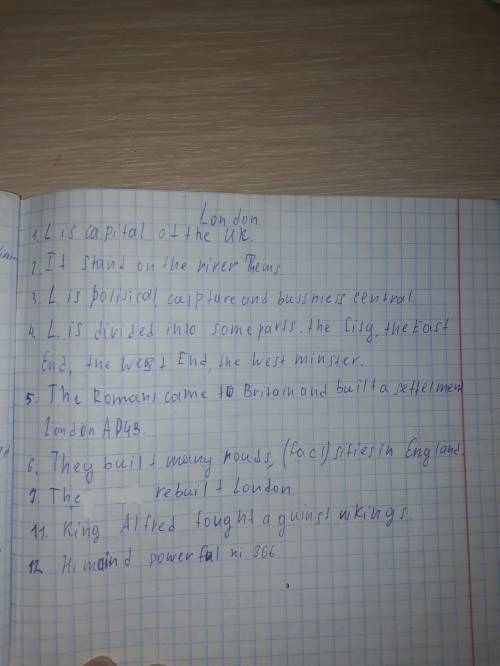 London
1. L is capital of the UK.
2. It stand on the river Thems.
3. L. is political, calpture and bussiness central.
4. L. is divided into some parts. the City, the East
End, the West End, the West minster.
5. The Romans came to Britain and built a settelmen
London AD43.
6. They built many rouds, (fací) sities in England.
9. The rebuilt London.
11. King Alfred fought aguings wkings.
12. powerful 366